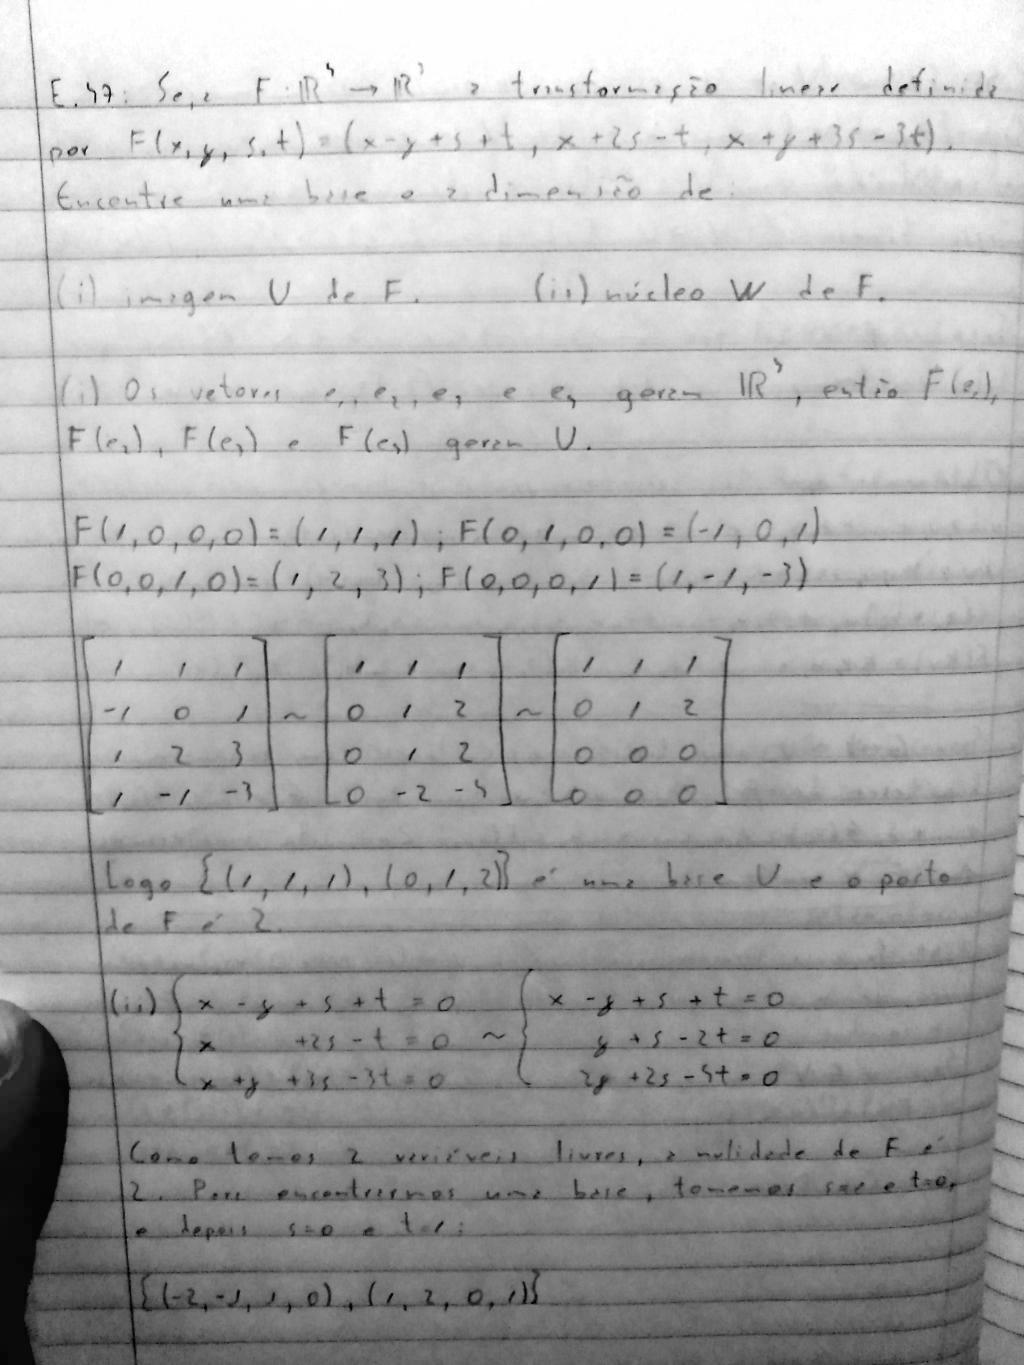 E.47: Seja F: ℝ⁴ → ℝ³ a transformação linear definida
por F(x, y, s, t) = (x - y + s + t, x + 2s - t, x + y + 3s - 3t).
Encontre uma base e a dimensão de:
(i) imagem U de F. (ii) núcleo W de F.
(i) Os vetores e₁, e₂, e₃ e e₄ geram ℝ⁴, então F(e₁),
F(e₂), F(e₃) e F(e₄) geram U.
F(1,0,0,0) = (1,1,1); F(0,1,0,0) = (-1,0,1)
F(0,0,1,0) = (1,2,3); F(0,0,0,1) = (1,-1,-3)
[1 1 1] [1 1 1] [1 1 1]
[-1 0 1] ~ [0 1 2] ~ [0 1 2]
[1 2 3] [0 1 2] [0 0 0]
[1 -1 -3] [0 -2 -4] [0 0 0]
Logo {(1,1,1), (0,1,2)} é uma base U e o posto
de F é 2.
(ii) { x - y + s + t = 0 { x - y + s + t = 0
x + 2s - t = 0 ~ y + s - 2t = 0
x + y + 3s - 3t = 0 2y + 2s - 4t = 0
Como temos 2 variáveis livres, a nulidade de F é
2. Para encontrarmos uma base, tomemos e t=0,
e depois s=0 e t=1:
{(-2,-1,1,0), (1,2,0,1)}